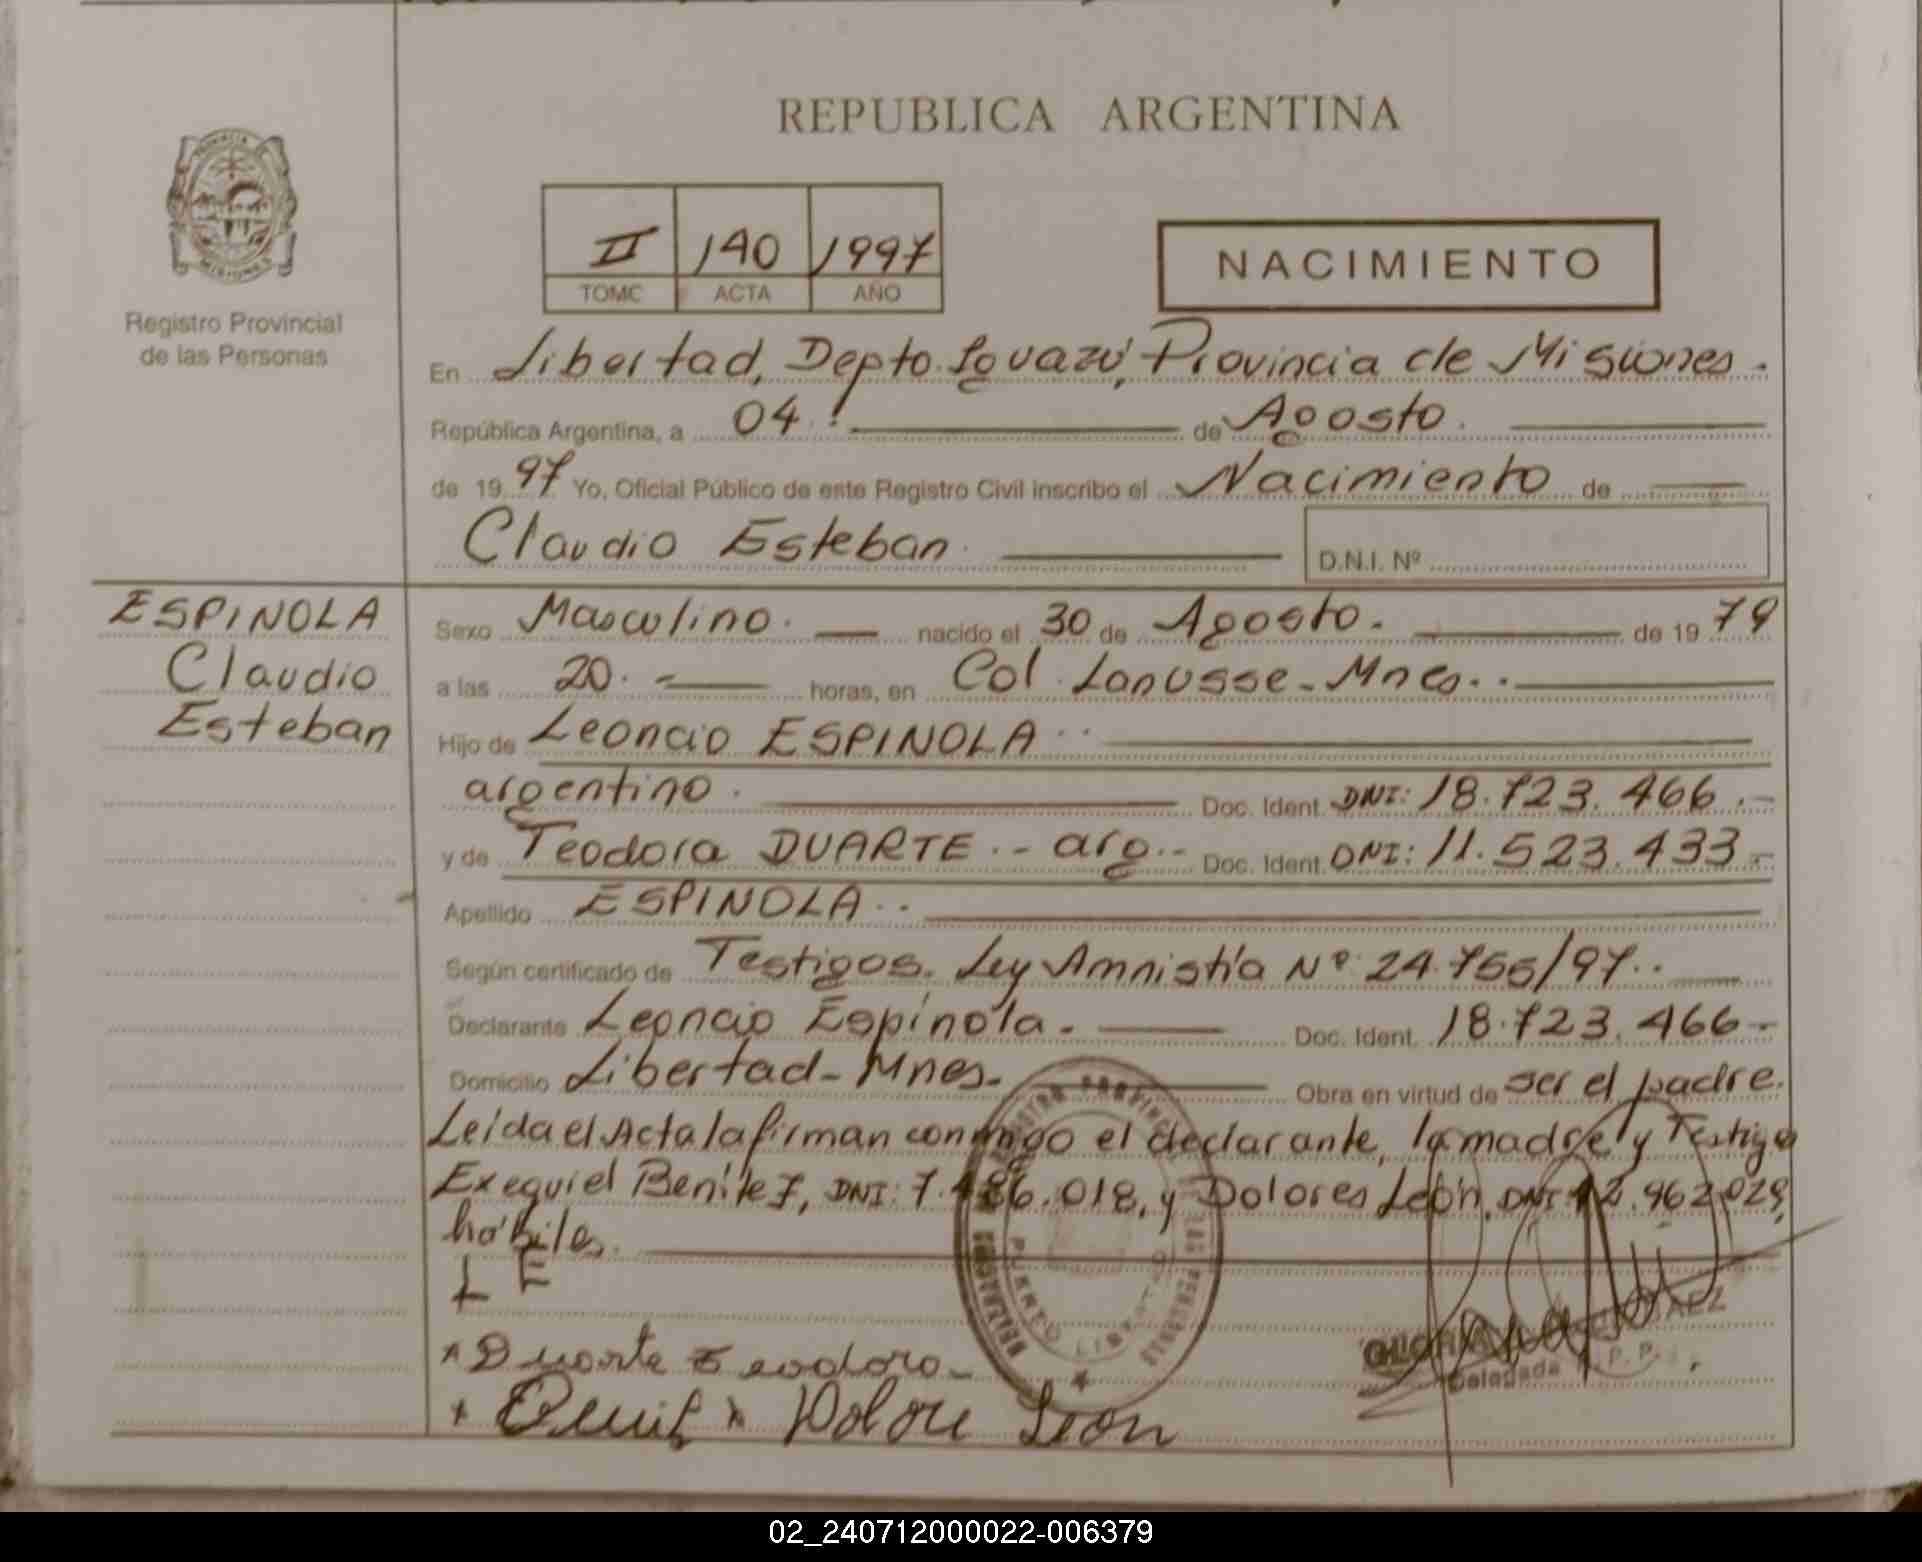 REPUBLICA ARGENTINA
PROVINCIA DE MISIONES
Registro Provincial
de las Personas
II 140 1997
TOMO ACTA AÑO
NACIMIENTO
En Libertad, Depto. Iguazú, Provincia de Misiones.
República Argentina, a 04. de Agosto.
de 19 97 Yo, Oficial Público de este Registro Civil inscribo el Nacimiento de
Claudio Esteban
D.N.I. Nº
ESPINOLA
Claudio
Esteban
Sexo Masculino. nacido el 30 de Agosto. de 19 79
a las 20. horas, en Col. Lanusse - Mnes.
Hijo de Leoncio ESPINOLA
argentino. Doc. Ident. DNI: 18.723.466.-
y de Teodora DUARTE.- arg.- Doc. Ident. DNI: 11.523.433.-
Apellido ESPINOLA
Según certificado de Testigos. Ley Amnistía Nº 24.755/97.
Declarante Leoncio Espínola. Doc. Ident. 18.723.466-
Domicilio Libertad - Mnes. Obra en virtud de ser el padre.
Leída el Acta la firman conmigo el declarante, la madre y Testigo
Exequiel Benítez, DNI: 7.486.018, y Dolores León, DNI 12.962.029,
hábiles.
L E
x Duarte Teodora
x x Dolore Leon
REGISTRO PROVINCIAL DE LAS PERSONAS
PUERTO LIBERTAD
MISIONES
Delegada R.P.P.
02_240712000022-006379